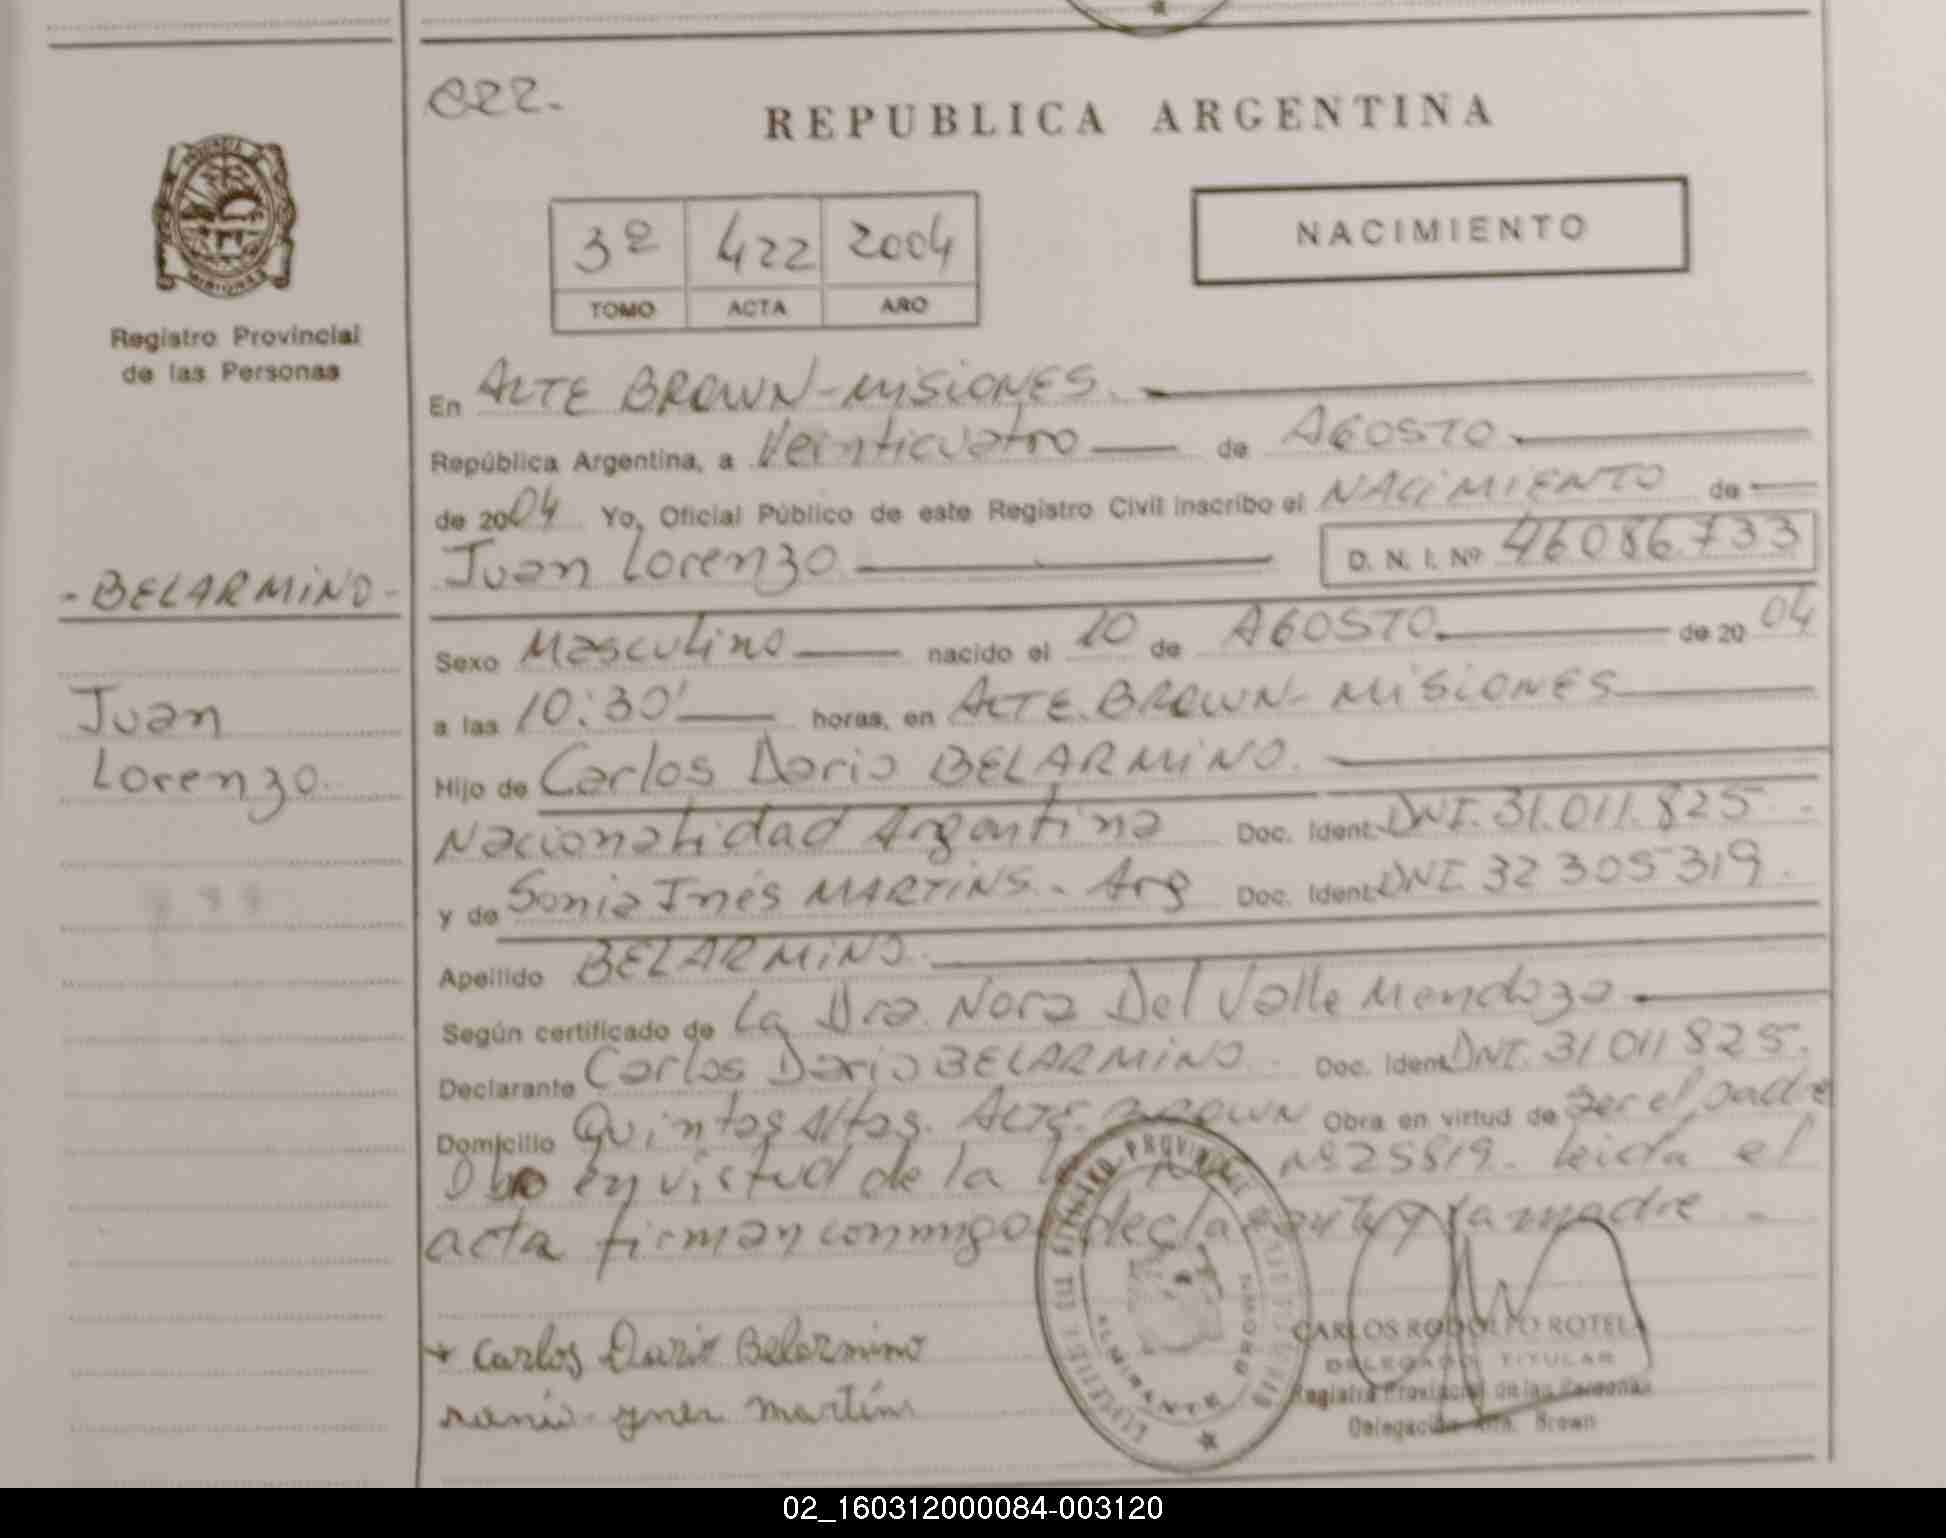 022.
REPUBLICA ARGENTINA
3º 422 2004
TOMO ACTA ARO
NACIMIENTO
PROVINCIA DE
MISIONES
Registro Provincial
de las Personas
En ALTE BROWN-MISIONES.
República Argentina, a Veinticuatro de AGOSTO
de 2004 Yo, Oficial Público de este Registro Civil inscribo el NACIMIENTO de
Juan Lorenzo D. N. I. Nº 46086733
- BELARMINO -
Juan
Lorenzo
Sexo Masculino nacido el 10 de AGOSTO de 20 04
a las 10:30' horas, en ALTE. BROWN- MISIONES
Hijo de Carlos Dario BELARMINO.
Nacionalidad Argentina Doc. Ident. DNI. 31.011.825 -
y de Sonia Inés MARTINS. Arg Doc. Ident. DNI 32 305 319.
Apellido BELARMINO.
Según certificado de La Dra. Nora Del Valle Mendoza
Declarante Carlos Dario BELARMINO. Doc. Ident. DNI. 31 011 825.
Domicilio Quintas Altas. ALTE. BROWN Obra en virtud de Ser el padre
en virtud de la Nº 25819. leida el
acta firman conmigo declarante y la madre -
Carlos Dario Belarmino
martins
REGISTRO PROVINCIAL DE LAS PERSONAS
ALMIRANTE BROWN
CARLOS RODOLFO ROTELA
DELEGADO TITULAR
Registro Provincial de las Personas
Delegación Alte. Brown
02_160312000084-003120